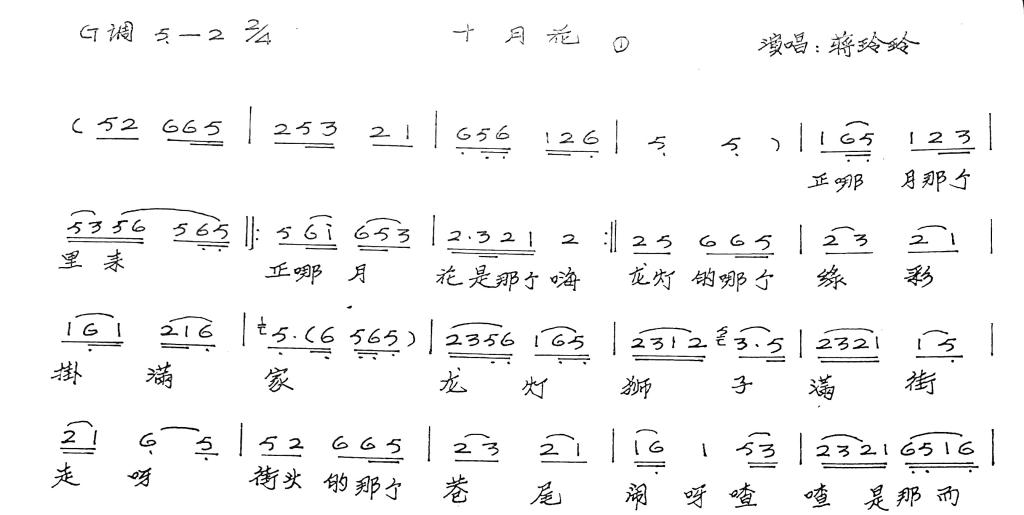 G调 5—2 2/4 十月花 ① 演唱:蒋玲玲
( 52 665 | 253 21 | 656 126 | 5 5 ) | 165 123 |
正哪 月那个
5356 565 ‖: 561 653 | 2·321 2 :‖ 25 665 | 23 21 |
里来 正哪月 花是那个嗨 龙灯的哪个 綵 彩
161 216 | 5·(6 565) | 2356 165 | 2312 3·5 | 2321 15 |
掛 满 家 龙 灯 狮 子 满 街
21 6 5 | 52 665 | 23 21 | 16 1 53 | 2321 6516 |
走 呀 街头 的那个 巷 尾 闹 呀 喳 喳 是那而